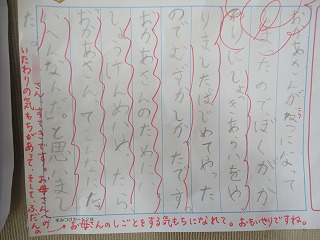 おかあさんがねつになって
しまったのでぼくがか
わりにしょっきあらいをや
りましたはじめてやった
のでむずかしかったです
おかあさんのために
しょうけんめいやったら
おかあさんて
んなんだ。と思いまし
た。
さん、すてきです。お母さんへの
いたわりの気もちがあって、そして、ふだんの
お母さんのしごとをする気もちになれて。おもいやりですね。